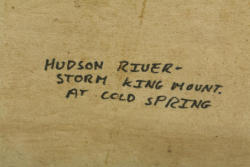 HUDSON RIVER-
STORM KING MOUNT.
AT COLD SPRING